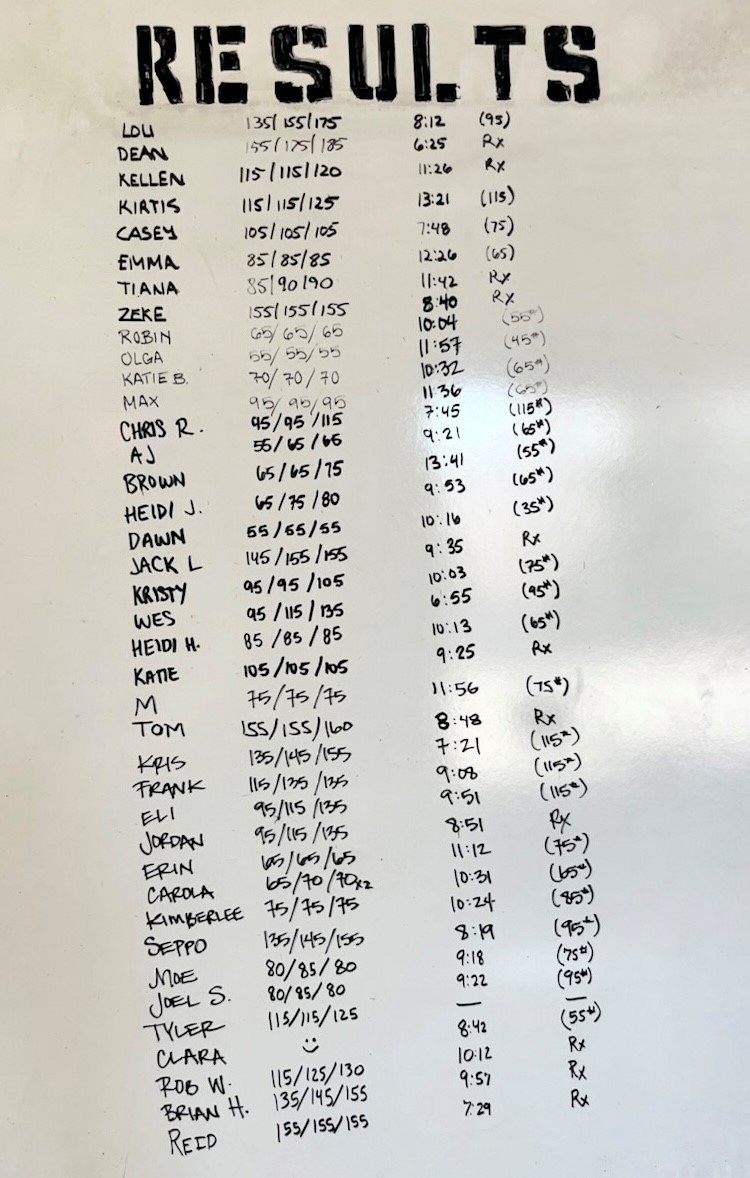 RESULTS
LOU 135/155/175 8:12 (95)
DEAN 155/175/185 6:25 Rx
KELLEN 115/115/120 11:26 Rx
KIRTIS 115/115/125 13:21 (115)
CASEY 105/105/105 7:48 (75)
EMMA 85/85/85 12:26 (65)
TIANA 85/90/90 11:42 Rx
ZEKE 155/155/155 8:40 Rx
ROBIN 65/65/65 10:04 (55#)
OLGA 55/55/55 11:57 (45#)
KATIE B. 70/70/70 10:32 (65#)
MAX 95/95/95 11:36 (65#)
CHRIS R. 95/95/115 7:45 (115#)
AJ 55/65/65 9:21 (65#)
BROWN 65/65/75 13:41 (55#)
HEIDI J. 65/75/80 9:53 (65#)
DAWN 55/55/55 10:16 (35#)
JACK L 145/155/155 9:35 Rx
KRISTY 95/95/105 10:03 (75#)
WES 95/115/135 6:55 (95#)
HEIDI H. 85/85/85 10:13 (65#)
KATIE 105/105/105 9:25 Rx
M 75/75/75 11:56 (75#)
TOM 155/155/160 8:48 Rx
KRIS 135/145/155 7:21 (115#)
FRANK 115/135/135 9:08 (115#)
ELI 95/115/135 9:51 (115#)
JORDAN 95/115/135 8:51 Rx
ERIN 65/65/65 11:12 (75#)
CAROLA 65/70/70x2 10:31 (65#)
KIMBERLEE 75/75/75 10:24 (85#)
SEPPO 135/145/155 8:19 (95#)
MOE 80/85/80 9:18 (75#)
JOEL S. 80/85/80 9:22 (95#)
TYLER 115/115/125 — —
CLARA :) 8:42 (55#)
ROB W. 115/125/130 10:12 Rx
BRIAN H. 135/145/155 9:57 Rx
REID 155/155/155 7:29 Rx